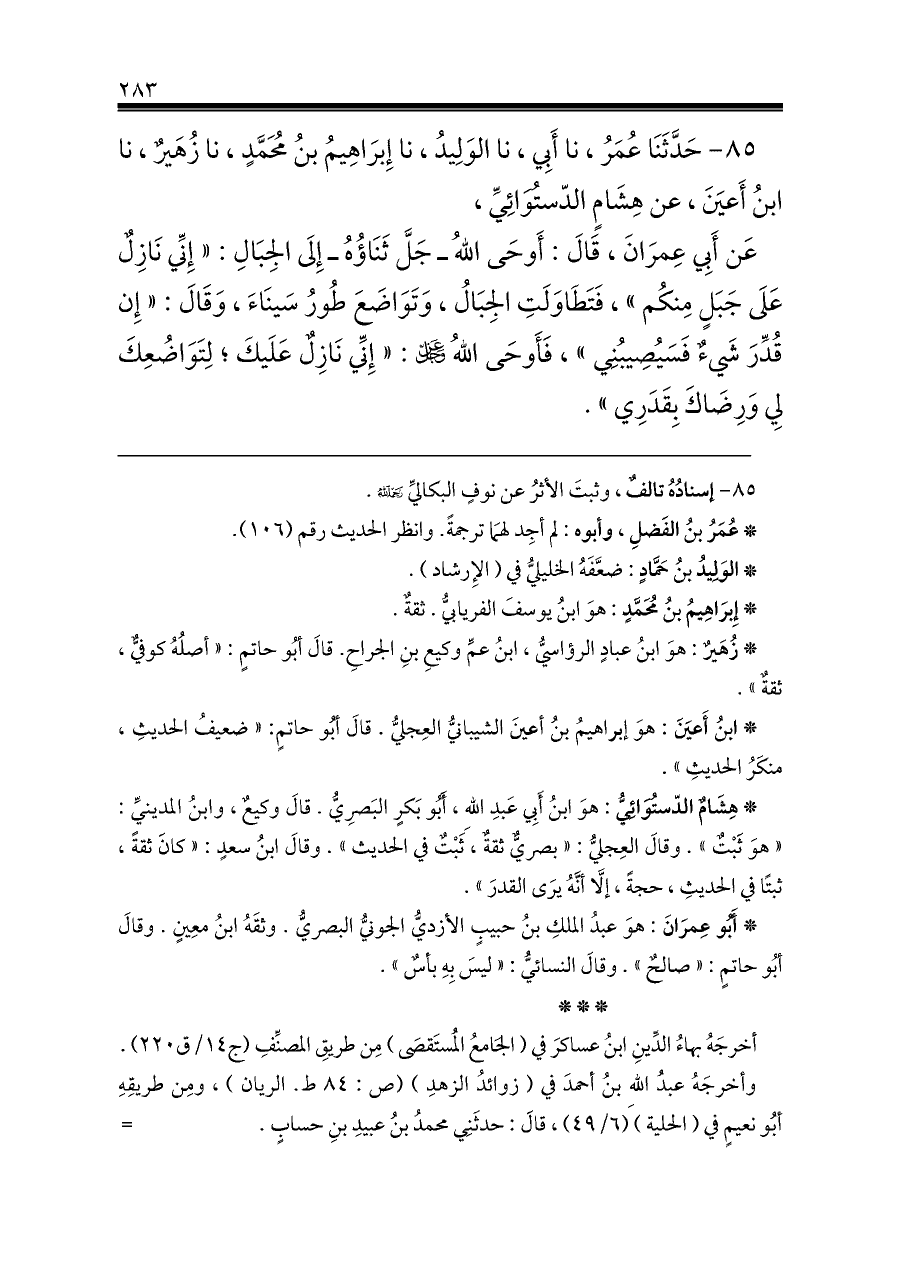 ٢٨٣
٨٥- حَدَّثَنَا عُمَرُ ، نا أَبِي ، نا الوَلِيدُ ، نا إِبرَاهِيمُ بنُ مُحَمَّدٍ ، نا زُهَيرٌ ، نا
ابنُ أَعيَنَ ، عن هِشَامٍ الدّستُوَائِيِّ ،
عَن أَبِي عِمرَانَ ، قَالَ : أَوحَى اللهُ ـ جَلَّ ثَنَاؤُهُ ـ إِلَى الجِبَالِ : « إِنِّي نَازِلٌ
عَلَى جَبَلٍ مِنكُم » ، فَتَطَاوَلَتِ الجِبَالُ ، وَتَوَاضَعَ طُورُ سَينَاءَ ، وَقَالَ : « إِن
قُدِّرَ شَيءٌ فَسَيُصِيبُنِي » ، فَأَوحَى اللهُ ﷿ : « إِنِّي نَازِلٌ عَلَيكَ ؛ لِتَوَاضُعِكَ
لِي وَرِضَاكَ بِقَدَرِي » .
٨٥- إسنادُهُ تالفٌ ، وثبتَ الأثرُ عن نوفٍ البكاليِّ رَحِمَهُ اللهُ .
* عُمَرُ بنُ الفَضلِ ، وأبوه : لم أجِد لهمَا ترجمةً. وانظر الحديث رقم (١٠٦).
* الوَلِيدُ بنُ حَمَّادٍ : ضعَّفَهُ الخليليُّ في ( الإرشاد ) .
* إِبرَاهِيمُ بنُ مُحَمَّدٍ : هوَ ابنُ يوسفَ الفريابيُّ . ثقةٌ .
* زُهَيرٌ : هوَ ابنُ عبادٍ الرؤاسيُّ ، ابنُ عمِّ وكيعِ بنِ الجراحِ. قالَ أبُو حاتمٍ : « أصلُهُ كوفيٌّ ،
ثقةٌ » .
* ابنُ أَعيَنَ : هوَ إبراهيمُ بنُ أعينَ الشيبانيُّ العِجليُّ . قالَ أبُو حاتمٍ: « ضعيفُ الحديثِ ،
منكَرُ الحديثِ » .
* هِشَامٌ الدّستُوَائِيُّ : هوَ ابنُ أَبِي عَبدِ اللهِ ، أَبُو بَكرٍ البَصرِيُّ . قالَ وكيعٌ ، وابنُ المدينيِّ :
« هوَ ثَبْتٌ » . وقالَ العِجليُّ : « بصريٌّ ثقةٌ ، ثَبْتٌ في الحديث » . وقالَ ابنُ سعدٍ : « كانَ ثقةً ،
ثبتًا في الحديثِ ، حجةً ، إلَّا أنَّهُ يرَى القدرَ » .
* أَبُو عِمرَانَ : هوَ عبدُ الملكِ بنُ حبيبٍ الأزديُّ الجونيُّ البصريُّ . وثقَهُ ابنُ معِينٍ . وقالَ
أبُو حاتمٍ : « صالحٌ » . وقالَ النسائيُّ : « ليسَ بِهِ بأسٌ » .
* * *
أخرجَهُ بهاءُ الدِّينِ ابنُ عساكرَ في ( الجَامعُ المُستَقصَى ) مِن طريقِ المصنِّفِ (ج١٤/ ق٢٢٠) .
وأخرجَهُ عبدُ اللهِ بنُ أحمدَ في ( زوائدُ الزهدِ ) (ص : ٨٤ ط. الريان ) ، ومِن طريقِهِ
أبُو نعيمٍ في ( الحلية ) (٦/ ٤٩) ، قالَ : حدثَنِي محمدُ بنُ عبيدِ بنِ حسابٍ . =